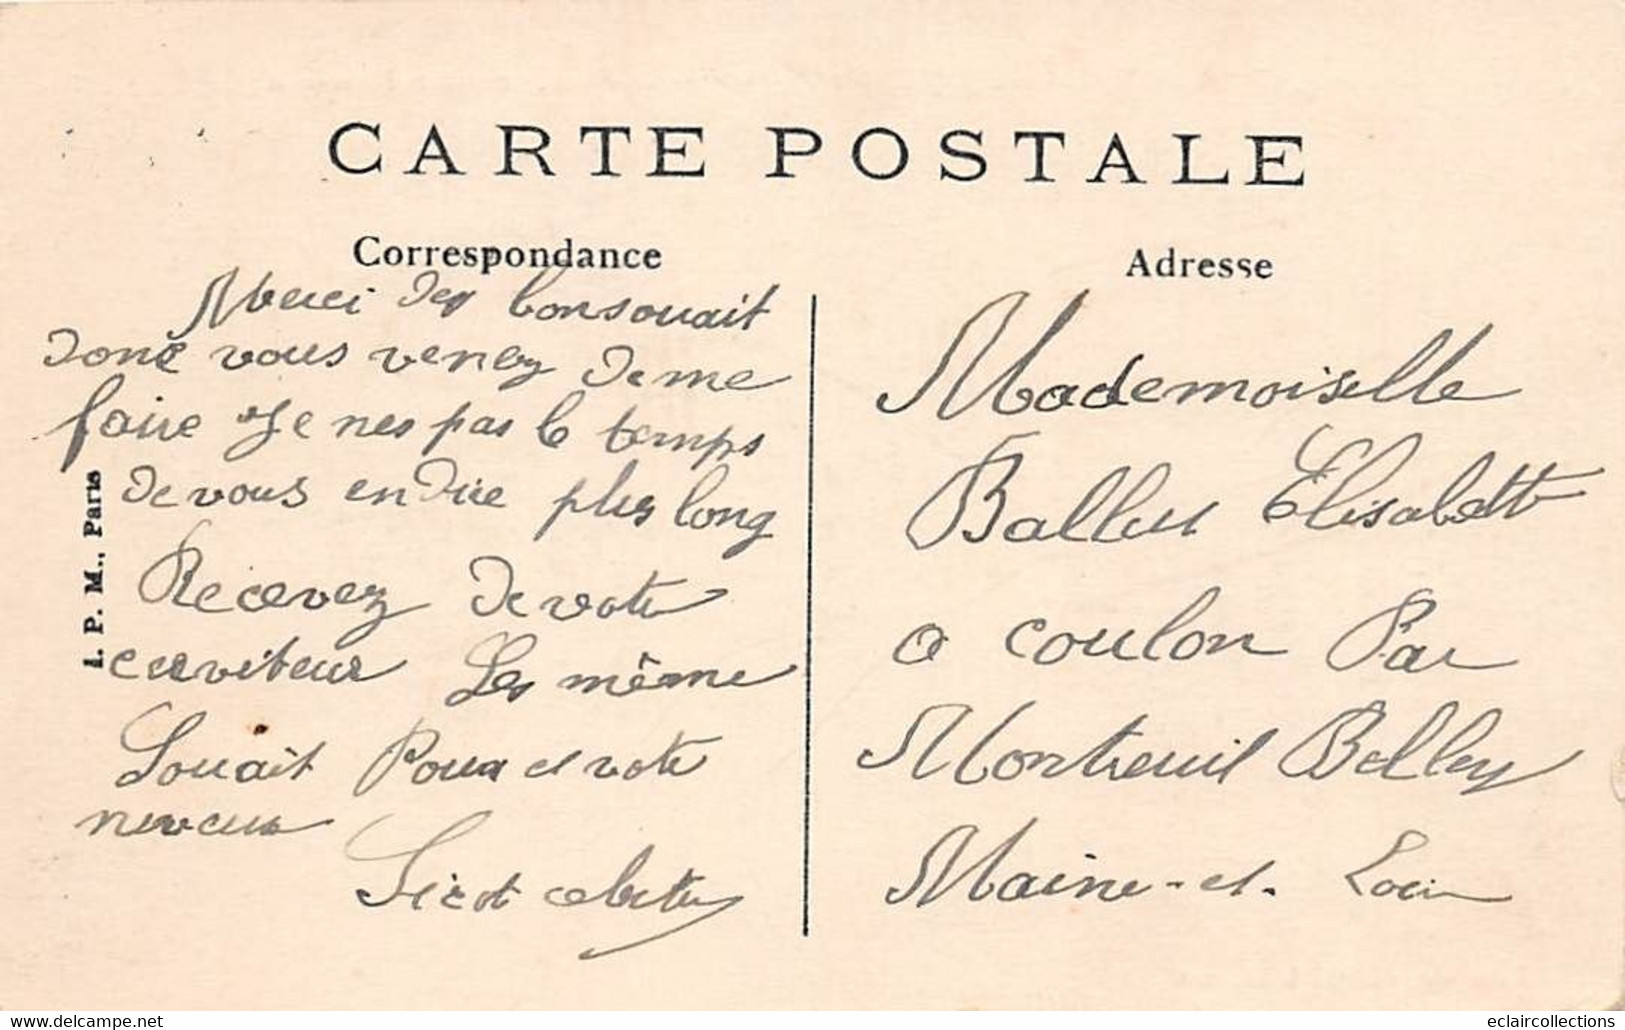 CARTE POSTALE
Correspondance
Merci des bonsouait
donc vous venez de me
faire Je nes pas le temps
de vous en dire plus long
Recevez de votre
cerviteur Les même
Souait Pour et votre
neveux
Adresse
Mademoiselle
Ballus Elisabett
a coulon Par
Montreuil Belley
Maine-et-Loire
I. P. M., Paris
www.delcampe.net
eclaircollections